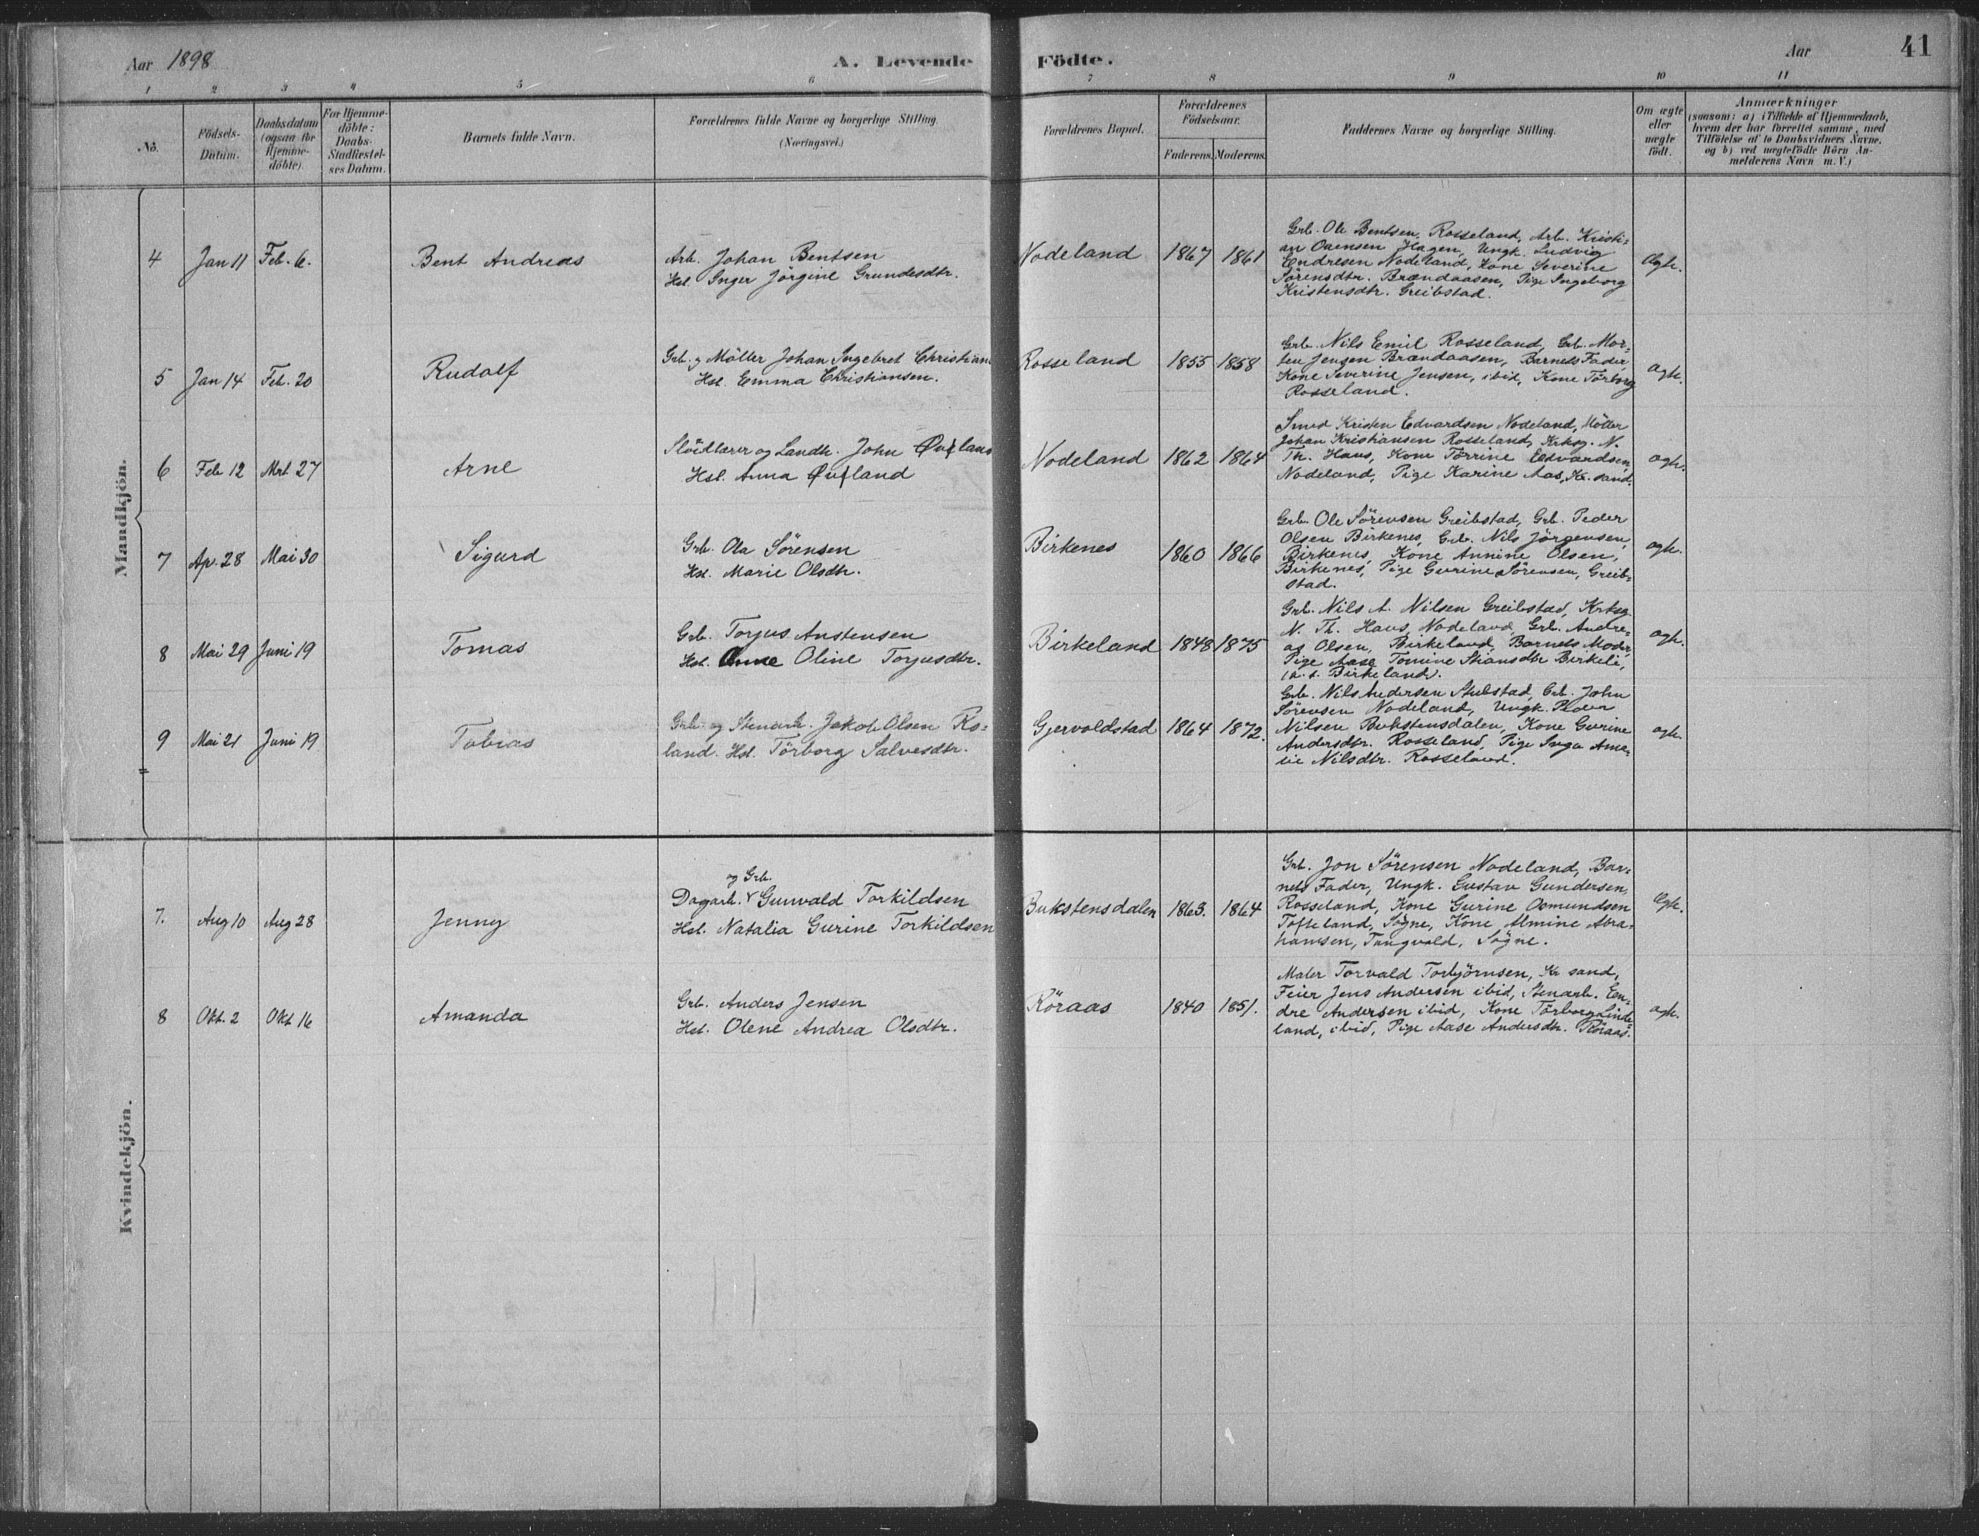 Aar 1898
A. Levende Födte.
Aar
41
1 2 3 4 5 6 7 8 9 10 11
No.
Födsels-
Datum.
Daabsdatum
(ogsaa for
Hjemme-
döbte).
For Hjemme-
döbte:
Daabs-
Stadfæstel-
ses Datum.
Barnets fulde Navn.
Forældrenes fulde Navne og borgerlige Stilling
(Næringsvei.)
Forældrenes Bopæl.
Forældrenes
Födselsaar.
Faderens. Moderens.
Faddernes Navne og borgerlige Stilling.
Om ægte
eller
uægte
födt.
Anmærkninger
(saasom: a) i Tilfælde af Hjemmedaab,
hvem der har forrettet samme, med
Tilföielse af to Daabsvidners Navne,
og b) ved uægtefödte Börn An-
melderens Navn m. V.)
Mandkjön.
4 Jan 11 Feb. 6. Bent Andreas
Arb. Johan Bentsen
Hst. Inger Jörgine Grundesdtr.
Nodeland 1867 1861
Grb. Ole Bentsen, Rosseland, Arb. Kristi-
an Hagen, Ungk. Ludvig
Endresen Nodeland, Kone Severine
Sörensdtr. Brændaasen, Pige Ingeborg
Kristensdtr. Greibstad.
Ægte.
5 Jan 14 Feb. 20 Rudolf
Grb. og Möller Johan Ingebret Christian
Hst. Emma Christiansen.
Rosseland 1855 1858
Grb. Nils Emil Rosseland, Grb. Mor-
ten Jensen Brændaasen, Barnets Fader,
Kone Severine Jensen, ibid, Kone Törborg
Rosseland.
ægte.
6 Feb 12 Mrt. 27 Arne
Slöidlærer og Landh. John Øvland
Hst. Anna Øvland
Nodeland 1862 1864
Smed Kristen Edvardsen Nodeland, Möller
Johan Kristiansen Rosseland, Krksg. N.
Th. Haus, Kone Törrine Edvardsen,
Nodeland, Pige Karine Aas, Kr. sand.
ægte.
7 Ap. 28 Mai 30 Sigurd
Grb. Ola Sörensen
Hst. Marie Olsdtr.
Birkenes 1860 1866
Grb. Ole Sörensen Greibstad, Grb. Peder
Olsen Birkenes, Grb. Nils Jörgensen,
Birkenes, Kone Annine Olsen,
Birkenes, Pige Gurine Sörensen, Greib-
stad.
ægte.
8 Mai 29 Juni 19 Tomas
Grb. Torjus Anstensen
Hst. Anne Oline Torjusdtr.
Birkeland 1848 1875
Grb. Nils A. Nilsen Greibstad, Krksg.
N. Th. Haus, Nodeland, Grb. Andre-
as Olsen, Birkeland, Barnets Moder,
Pige Aase Tomine
Birkeland.
ægte.
9 Mai 21 Juni 19 Tobias
Grb. og Stenarb. Jakob Olsen Ro-
land. Hst. Törborg Salvesdtr.
Gjervoldstad 1864 1872.
Grb. Nils Andersen Stubstad, Grb. John
Sörensen Nodeland, Ungk.
Nilsen Bukstensdalen, Kone Gurine
Andersdtr. Rosseland, Pige Inga Ama-
lie Nilsdtr. Rosseland.
ægte.
Kvindekjön.
7. Aug 10 Aug 28 Jenny
og Grb.
Dagarb. Gunvald Torkildsen
Hst. Natalia Gurine Torkildsen
Bukstensdalen 1863. 1864
Grb. Jon Sörensen Nodeland, Bar-
nets Fader, Ungk. Gustav Gundersen,
Rosseland, Kone Gurine Osmundsen
Tofteland, Sögne, Kone Almine Abra-
hamsen, Tangvald, Sögne.
Ægte.
8 Okt. 2 Okt 16 Amanda
Grb. Anders Jensen
Hst. Olene Andrea Olsdtr.
Röraas 1840 1851.
Maler Torvald Torbjörnsen, Kr sand,
Feier Jens Andersen ibid, Stenarb. En-
dre Andersen ibid, Kone Törborg Linde-
land, ibid, Pige Aase Andersdtr. Röraas.
ægte.